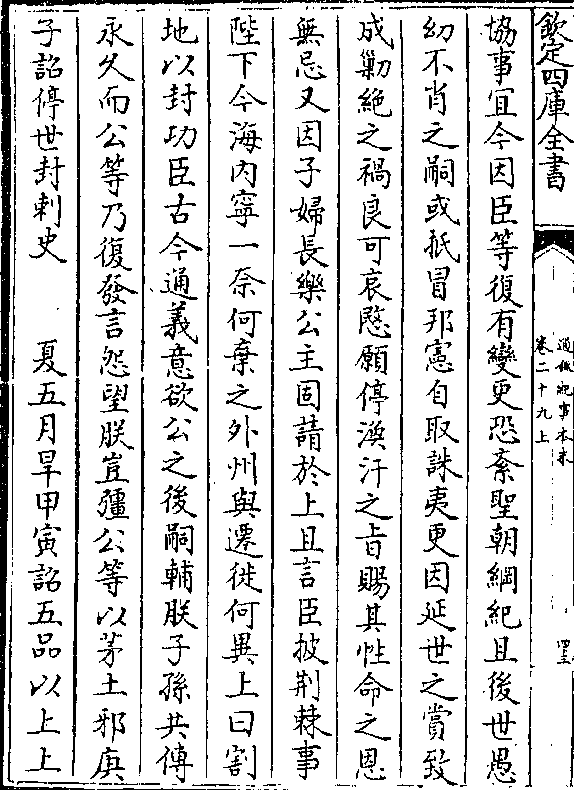 欽定四庫全書
通鑑紀事本末
卷二十九上
協事宜今因臣等復有變更恐紊聖朝綱紀且後世愚
幼不肖之嗣或抵冒邦憲自取誅夷更因延世之賞致
成勦絶之禍良可哀愍願停渙汗之旨賜其性命之恩
無忌又因子婦長樂公主固請於上且言臣披荆棘事
陛下今海内寧一奈何棄之外州與遷徙何異上曰割
地以封功臣古今通義意欲公之後嗣輔朕子孫共傳
永久而公等乃復發言怨望朕豈彊公等以茅土邪庚
子詔停世封刺史　夏五月旱甲寅詔五品以上上